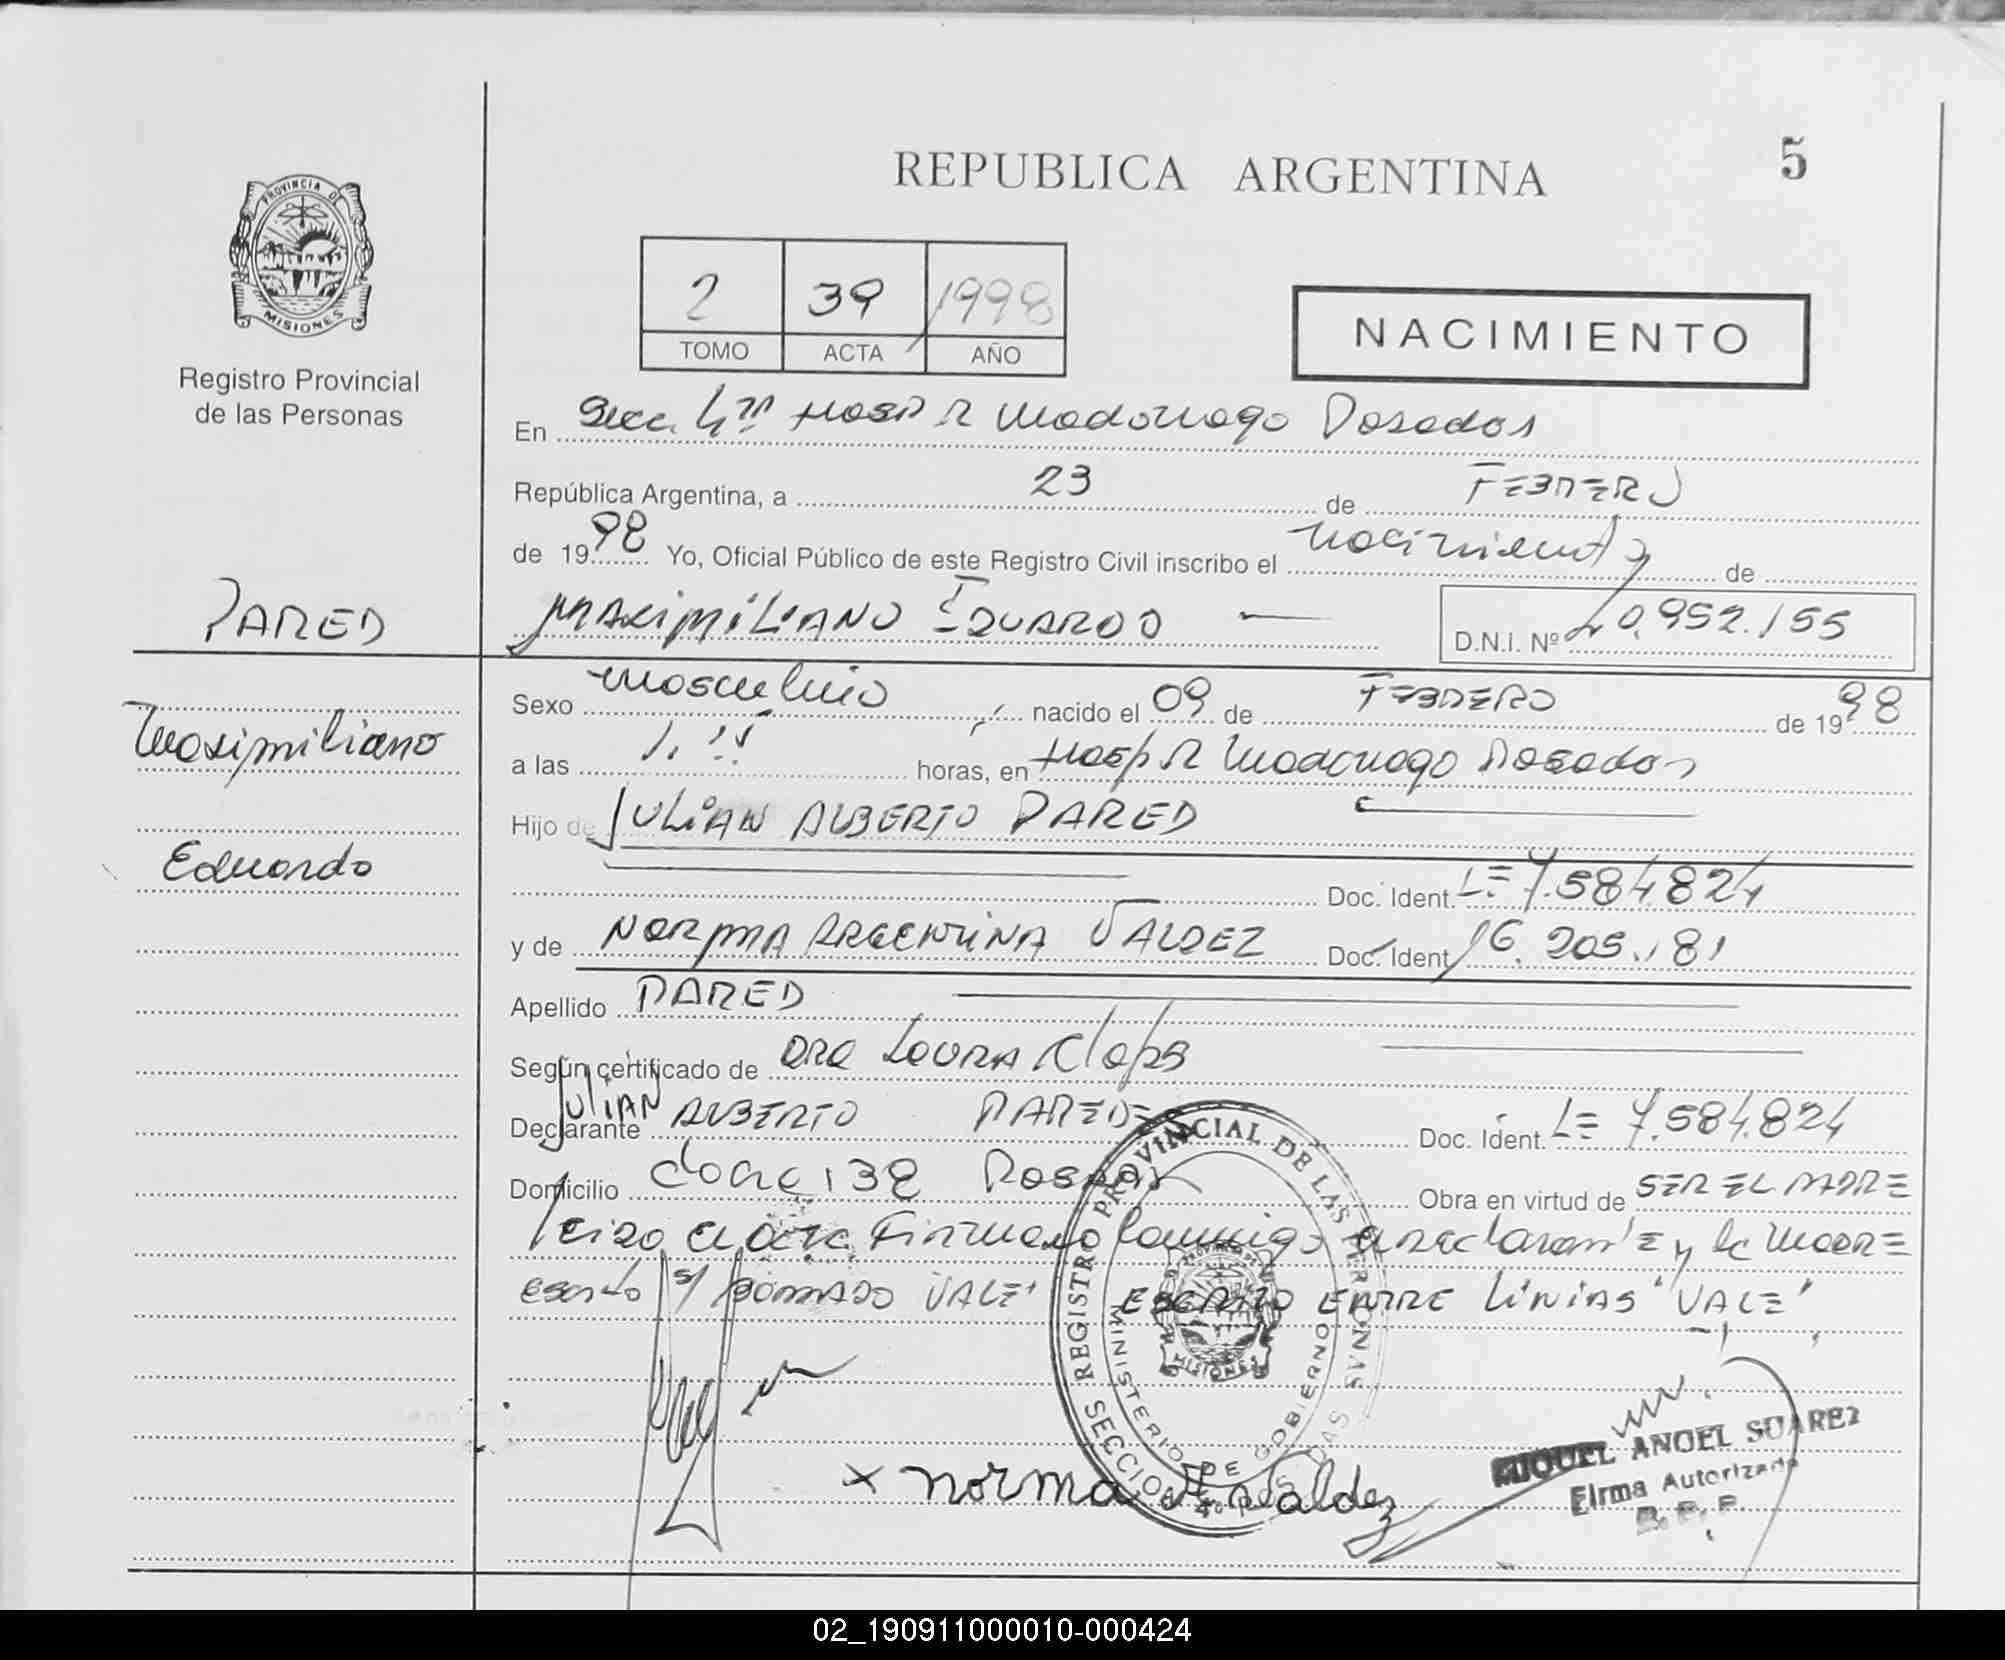 REPUBLICA ARGENTINA
5
PROVINCIA DE
MISIONES
Registro Provincial
de las Personas
2 39 1998
TOMO ACTA AÑO
NACIMIENTO
En Secc. 4ta Hosp R Madariaga Posadas
República Argentina, a 23 de FEBRERO
de 1998 Yo, Oficial Público de este Registro Civil inscribo el nacimiento de
PARED
MAXIMILIANO EDUARDO
D.N.I. Nº 40.952.155
Sexo masculino nacido el 09 de FEBRERO de 1998
Maximiliano
a las horas, en Hosp R Madariaga Posadas
Hijo de JULIAN ALBERTO PARED
Eduardo
Doc. Ident. LE 7.584824
y de NORMA ARGENTINA VALDEZ Doc. Ident 16.205.181
Apellido PARED
Según certificado de DRA LAURA Claps
Declarante JULIAN ALBERTO PARED Doc. Ident. LE 7.584.824
Domicilio 138 Posadas Obra en virtud de SER EL PADRE
Leida el acta Firman conmigo declarante y la madre
escrito s/ BORRADO VALE" ESCRITO ENTRE LINIAS "VALE"
REGISTRO PROVINCIAL DE LAS PERSONAS
MINISTERIO DE GOBIERNO
SECCION 4º POSADAS
PROVINCIA DE
MISIONES
x norma A Valdez
MIGUEL ANGEL SUAREZ
Firma Autorizada
R. P. P.
02_190911000010-000424